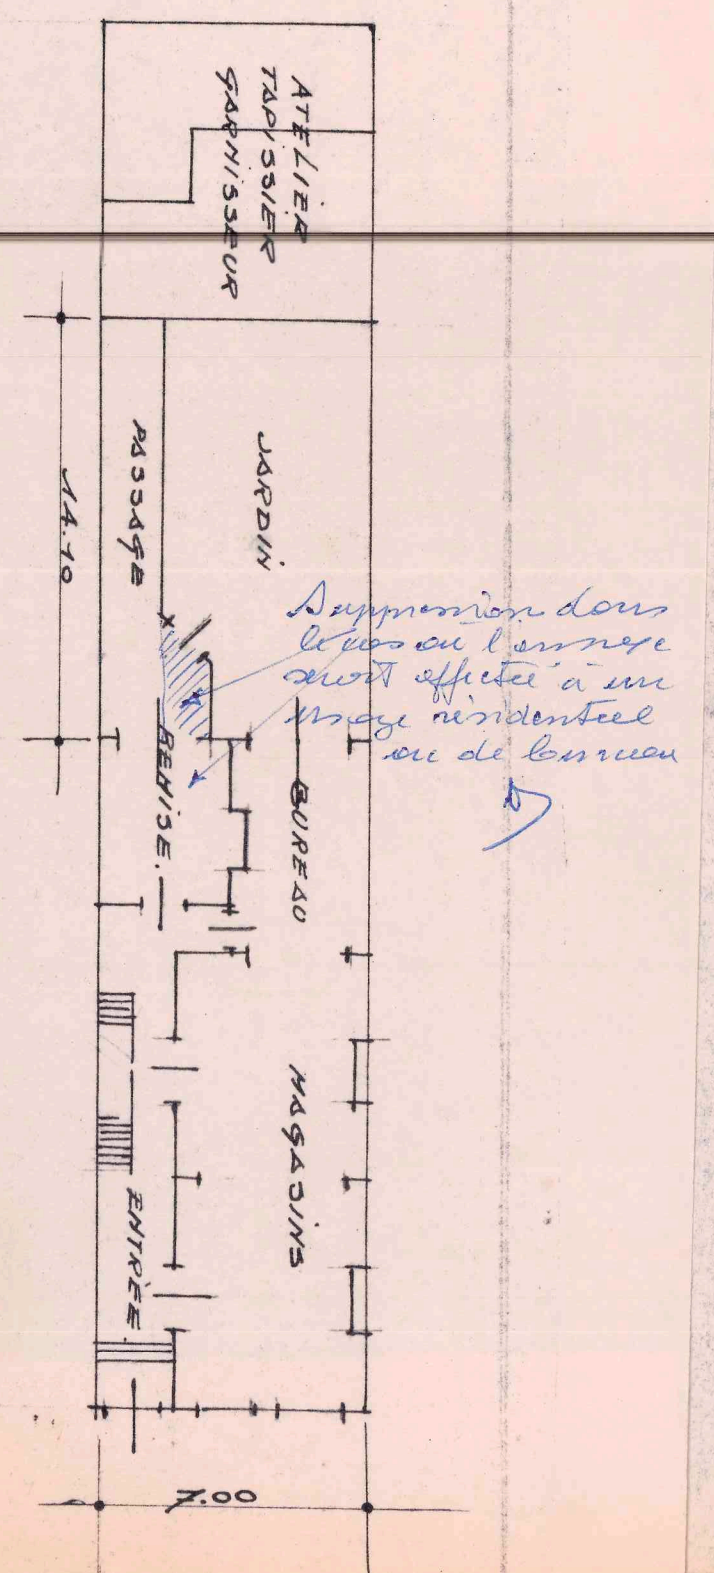 ATELIER
TAPISSIER
GARNISSEUR
PASSAGE
JARDIN
14.10
Suppression dans
le cas où l'annexe
serait affectée à un
usage résidentiel
ou de bureau
REMISE.
BUREAU
MAGASINS
ENTRÉE.
7.00